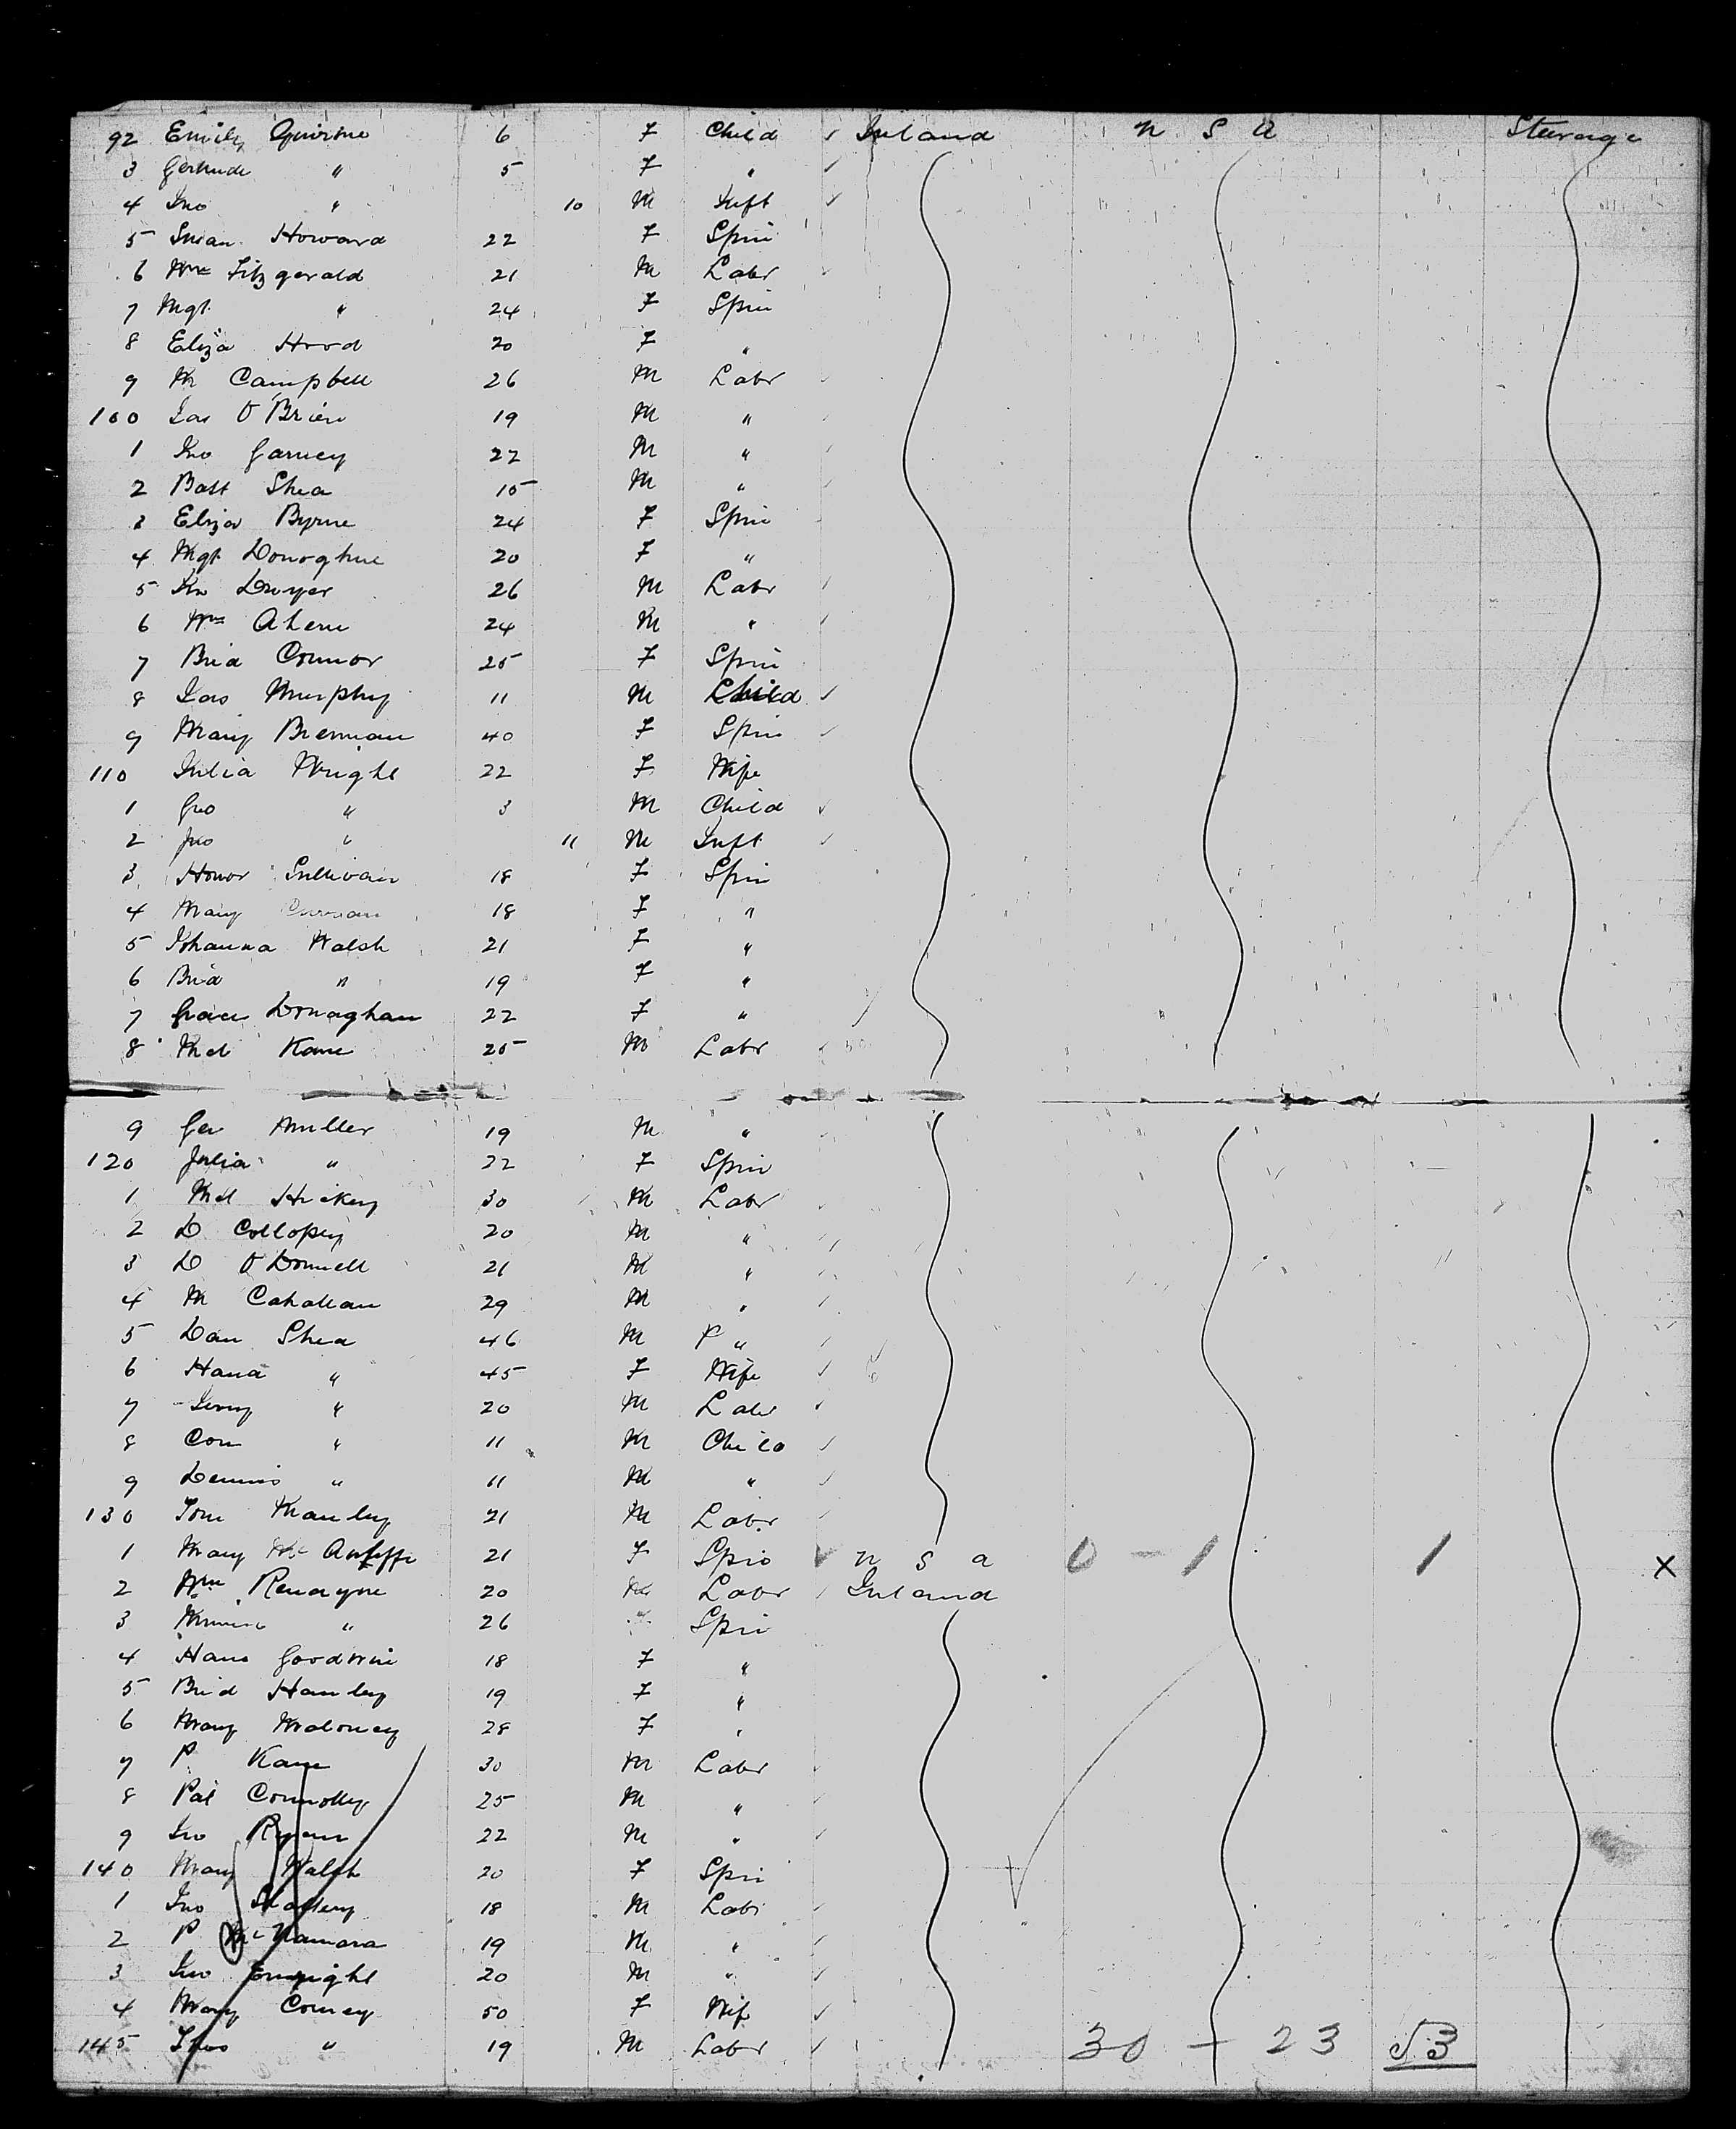 92 Emily Quirine 6 F Child ✓ Ireland U S A Steerage
3 Gertrude " 5 F " ✓
4 Jno " 10 M Inft ✓
5 Susan Howard 22 F Spin
6 Wm Fitzgerald 21 M Labr
7 Mgt " 24 F Spin
8 Eliza Hood 20 F "
9 M Campbell 26 M Labr
100 Jas O'Brien 19 M "
1 Jno Garney 22 M "
2 Batt Shea 15 M "
3 Eliza Byrne 24 F Spin
4 Mgt Donoghue 20 F "
5 Jno Dwyer 26 M Labr
6 Wm Ahern 24 M "
7 Brid Connor 25 F Spin
8 Jas Murphy 11 M Child ✓
9 Mary Brennan 40 F Spin ✓
110 Julia Wright 22 F Wife
1 Geo " 3 M Child ✓
2 Jno " 11 M Inft ✓
3 Honor Sullivan 18 F Spin
4 Mary 18 F "
5 Johanna Walsh 21 F "
6 Brid " 19 F "
7 Grace Donaghan 22 F "
8 Mcl Kane 25 M Labr
9 Geo Miller 19 M "
120 Julia " 22 F Spin
1 Mcl Hickey 30 M Labr
2 D Collopy 20 M "
3 D O'Donnell 21 M "
4 M Cahallan 29 M "
5 Dan Shea 46 M "
6 Hana " 45 F Wife
7 Jerry " 20 M Labr
8 Con " 11 M Child ✓
9 Dennis " 11 M " ✓
130 Tom Manley 21 M Labr
1 Mary Mc Auliffe 21 F Spin ✓ U S A 0 - 1 1 X
2 Wm Renayne 20 M Labr Ireland
3 Minnie " 26 Spin
4 Hana Goodwin 18 F "
5 Brid Hanley 19 F "
6 Mary Moloney 28 F "
7 P. Kane 30 M Labr
8 Pat Connolly 25 M "
9 Jno Ryan 22 M "
140 Mary Walsh 20 F Spin
1 Jno Slattery 18 M Labr
2 P McNamara 19 M "
3 Jno Enright 20 M "
4 Mary Comey 50 F Wif
145 Thos " 19 M Labr 30 - 23 53